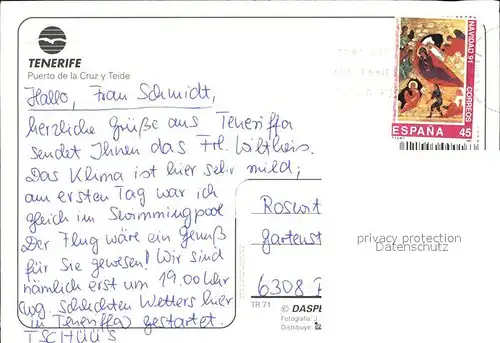 TENERIFE
Puerto de la Cruz y Teide
Hallo, Frau Schmidt,
herzliche Grüße aus Teneriffa
sendet Ihnen das Frl. Wiltheis.
Das Klima ist hier sehr mild;
am ersten Tag war ich
gleich im Swimmingpool
Der Flug wäre ein Genuß
für Sie gewesen! Wir sind
nämlich erst um 19.00 Uhr
wg. schlechten Wetters hier
in Teneriffa gestartet.
TSCHÜÜS
NAVIDAD 91
CORREOS
ESPAÑA 45
Roswit
Gartenst
6308
privacy protection
Datenschutz
TR 71
© DASPE
Fotografía: J.
Distribuye: